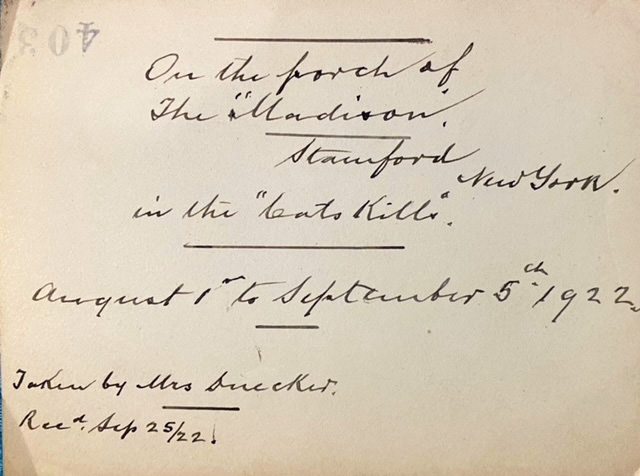 403
On the porch of
The "Madison".
Stamford
New York.
in the "Cats Kills".
August 1st to September 5th 1922.
Taken by Mrs Duecker.
Recd. Sep 25/22.